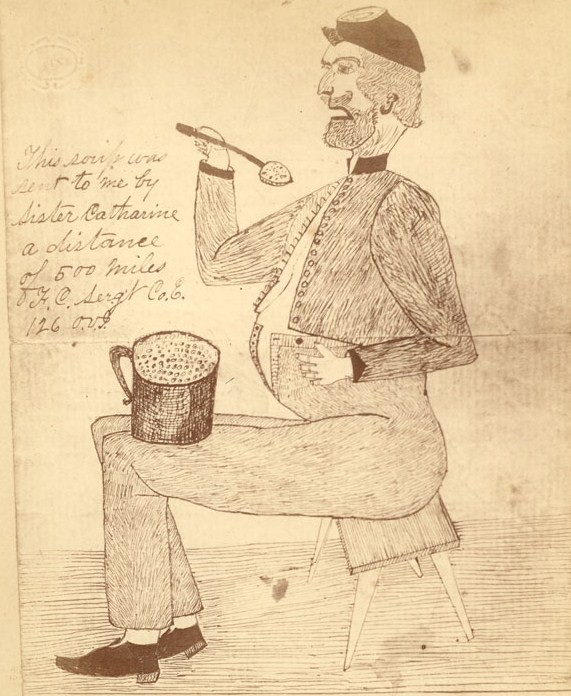 This soup was
sent to me by
Sister Catharine
a distance
of 500 miles
F. C. Sergt Co. E.
126 O.V.I.